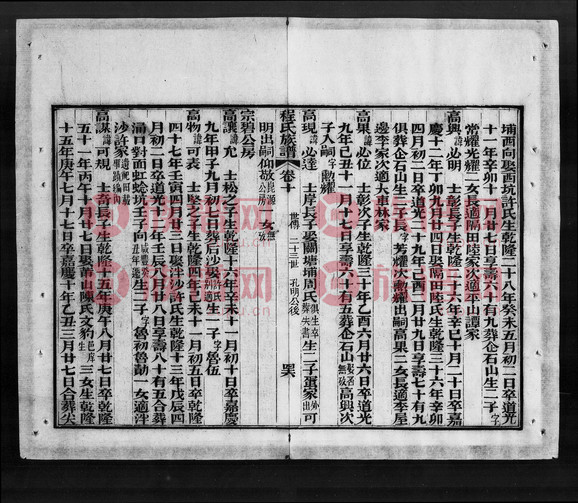 埔西向娶西坑許氏生乾隆二十八年癸未五月初二日卒道光
十一年辛卯十一月廿七日享壽六十有九葬企石山生二子字
常耀光耀二女長適隔田陸家次適平山譚家
高興諱必明 士彰長子生乾隆二十六年辛巳十月二十日卒嘉
慶十二年丁卯九月廿四日娶隔田陸氏生乾隆三十六年辛卯
四月初二日卒道光二十九年己酉六月廿九日享壽七十有九
俱葬企石山生三子長字芳耀次嗽耀出嗣高果二女長適李屋
邊李家次適大車林家
高果諱必位 士彰次子生乾隆三十年乙酉六月廿六日卒道光
九年己丑十一月十七日享壽六十有五葬企石山娶
子入嗣字嗽耀
高現諱必達 士岸長子娶關塘埔周氏俱生卒葬失書生二子疍家出外可
明出嗣仰敬公房 女無
宗碧公房
高讓諱允 士松之子生乾隆十六年辛未十一月初十日卒嘉慶
九年甲子九月初七日葬后沙娶許氏生一子字魯伍
高物諱可表 士堅之子生乾隆四年己未十一月初五日卒乾隆
四十七年壬寅四月廿三日娶泮沙許氏生乾隆十三年戊辰四
月初二日卒道光十二年壬辰八月廿八日享壽八十有五合葬
涌口對面虹蜍坑壬丙向 生二子字魯初魯勤一女適泮
沙許家
高謀諱可規 士音長子生乾隆十五年庚午八月廿七日卒乾隆
五十一年丙午十月廿七日娶蕭山陳氏文豹 三女生乾隆
十五年庚午七月十七日卒嘉慶十年乙丑三月廿七日合葬尖
程氏族譜 卷十
世傳 二十三世 孔明公後